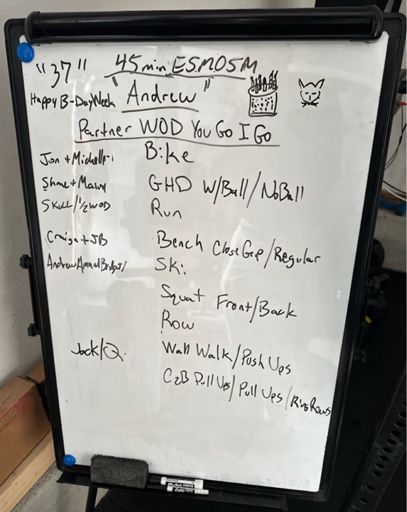 "37" 45 min ESMO5M
Happy B-Day Week "Andrew"
Partner WOD You Go I Go
Jon + Michelle
Bike
Shane + Maisy
GHD W/Ball/NoBall
Skull/1/2 WOD
Run
Craig + JB
Bench Close Grip/Regular
Andrew
Ski
Squat Front/Back
Row
Jack/Q.
Wall Walk/Push Ups
C2B Pull Ups/Pull Ups/Ring Rows